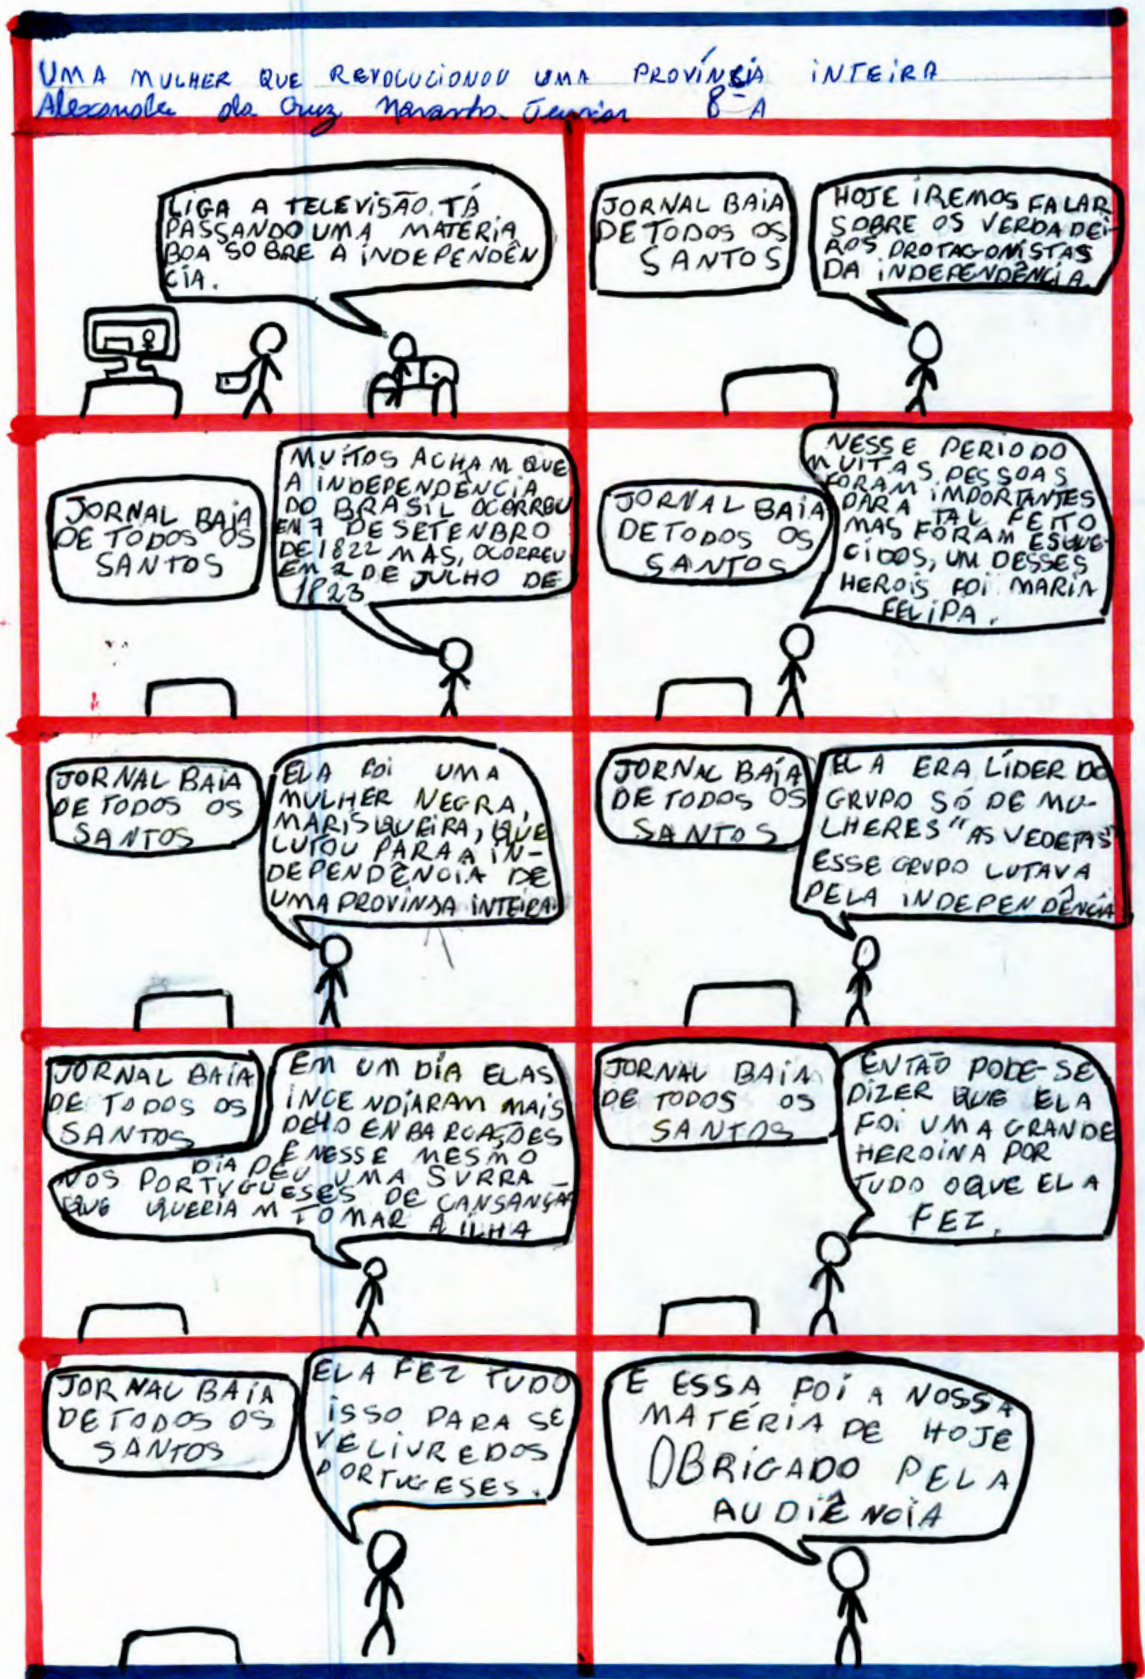 UMA MULHER QUE REVOLUCIONOU UMA PROVÍNCIA INTEIRA
Alexandre da Cruz Junior 8ª A
LIGA A TELEVISÃO, TÁ
PASSANDO UMA MATÉRIA
BOA SOBRE A INDEPENDÊN
CIA.
JORNAL BAIA
DE TODOS OS
SANTOS
HOJE IREMOS FALAR
SOBRE OS VERDADEI-
ROS PROTAGONISTAS
DA INDEPENDÊNCIA.
JORNAL BAIA
DE TODOS OS
SANTOS
MUITOS ACHAM QUE
A INDEPENDÊNCIA
DO BRASIL OCORREU
EM 7 DE SETENBRO
DE 1822 MAS, OCORREU
EM 2 DE JULHO DE
1823
JORNAL BAIA
DE TODOS OS
SANTOS
NESSE PERIODO
MUITAS PESSOAS
FORAM IMPORTANTES
PARA TAL FEITO
MAS FORAM ESQUE-
CIDOS, UM DESSES
HEROIS FOI MARIA
FELIPA.
JORNAL BAIA
DE TODOS OS
SANTOS
ELA FOI UMA
MULHER NEGRA,
MARISQUEIRA, QUE
LUTOU PARA A IN-
DEPENDÊNCIA DE
UMA PROVINSA INTEIRA.
JORNAL BAÍA
DE TODOS OS
SANTOS
ELA ERA LÍDER DO
GRUPO SÓ DE MU-
LHERES "AS VEDETAS"
ESSE GRUPO LUTAVA
PELA INDEPENDÊNCIA
JORNAL BAIA
DE TODOS OS
SANTOS
EM UM DÍA ELAS
INCENDIARAM MAIS
DE 40 ENBARCAÇÕES
E NESSE MESMO
DIA DEU UMA SURRA
NOS PORTUGUESES DE CANSANÇÃ
QUE QUERIAM TOMAR A ILHA
JORNAL BAIA
DE TODOS OS
SANTOS
ENTÃO PODE-SE
DIZER QUE ELA
FOI UMA GRANDE
HEROINA POR
TUDO OQUE ELA
FEZ.
JORNAL BAIA
DE TODOS OS
SANTOS
ELA FEZ TUDO
ISSO PARA SE
VE LIVRE DOS
PORTUGESES.
E ESSA FOI A NOSSA
MATÉRIA DE HOJE
OBRIGADO PELA
AUDIÊNCIA